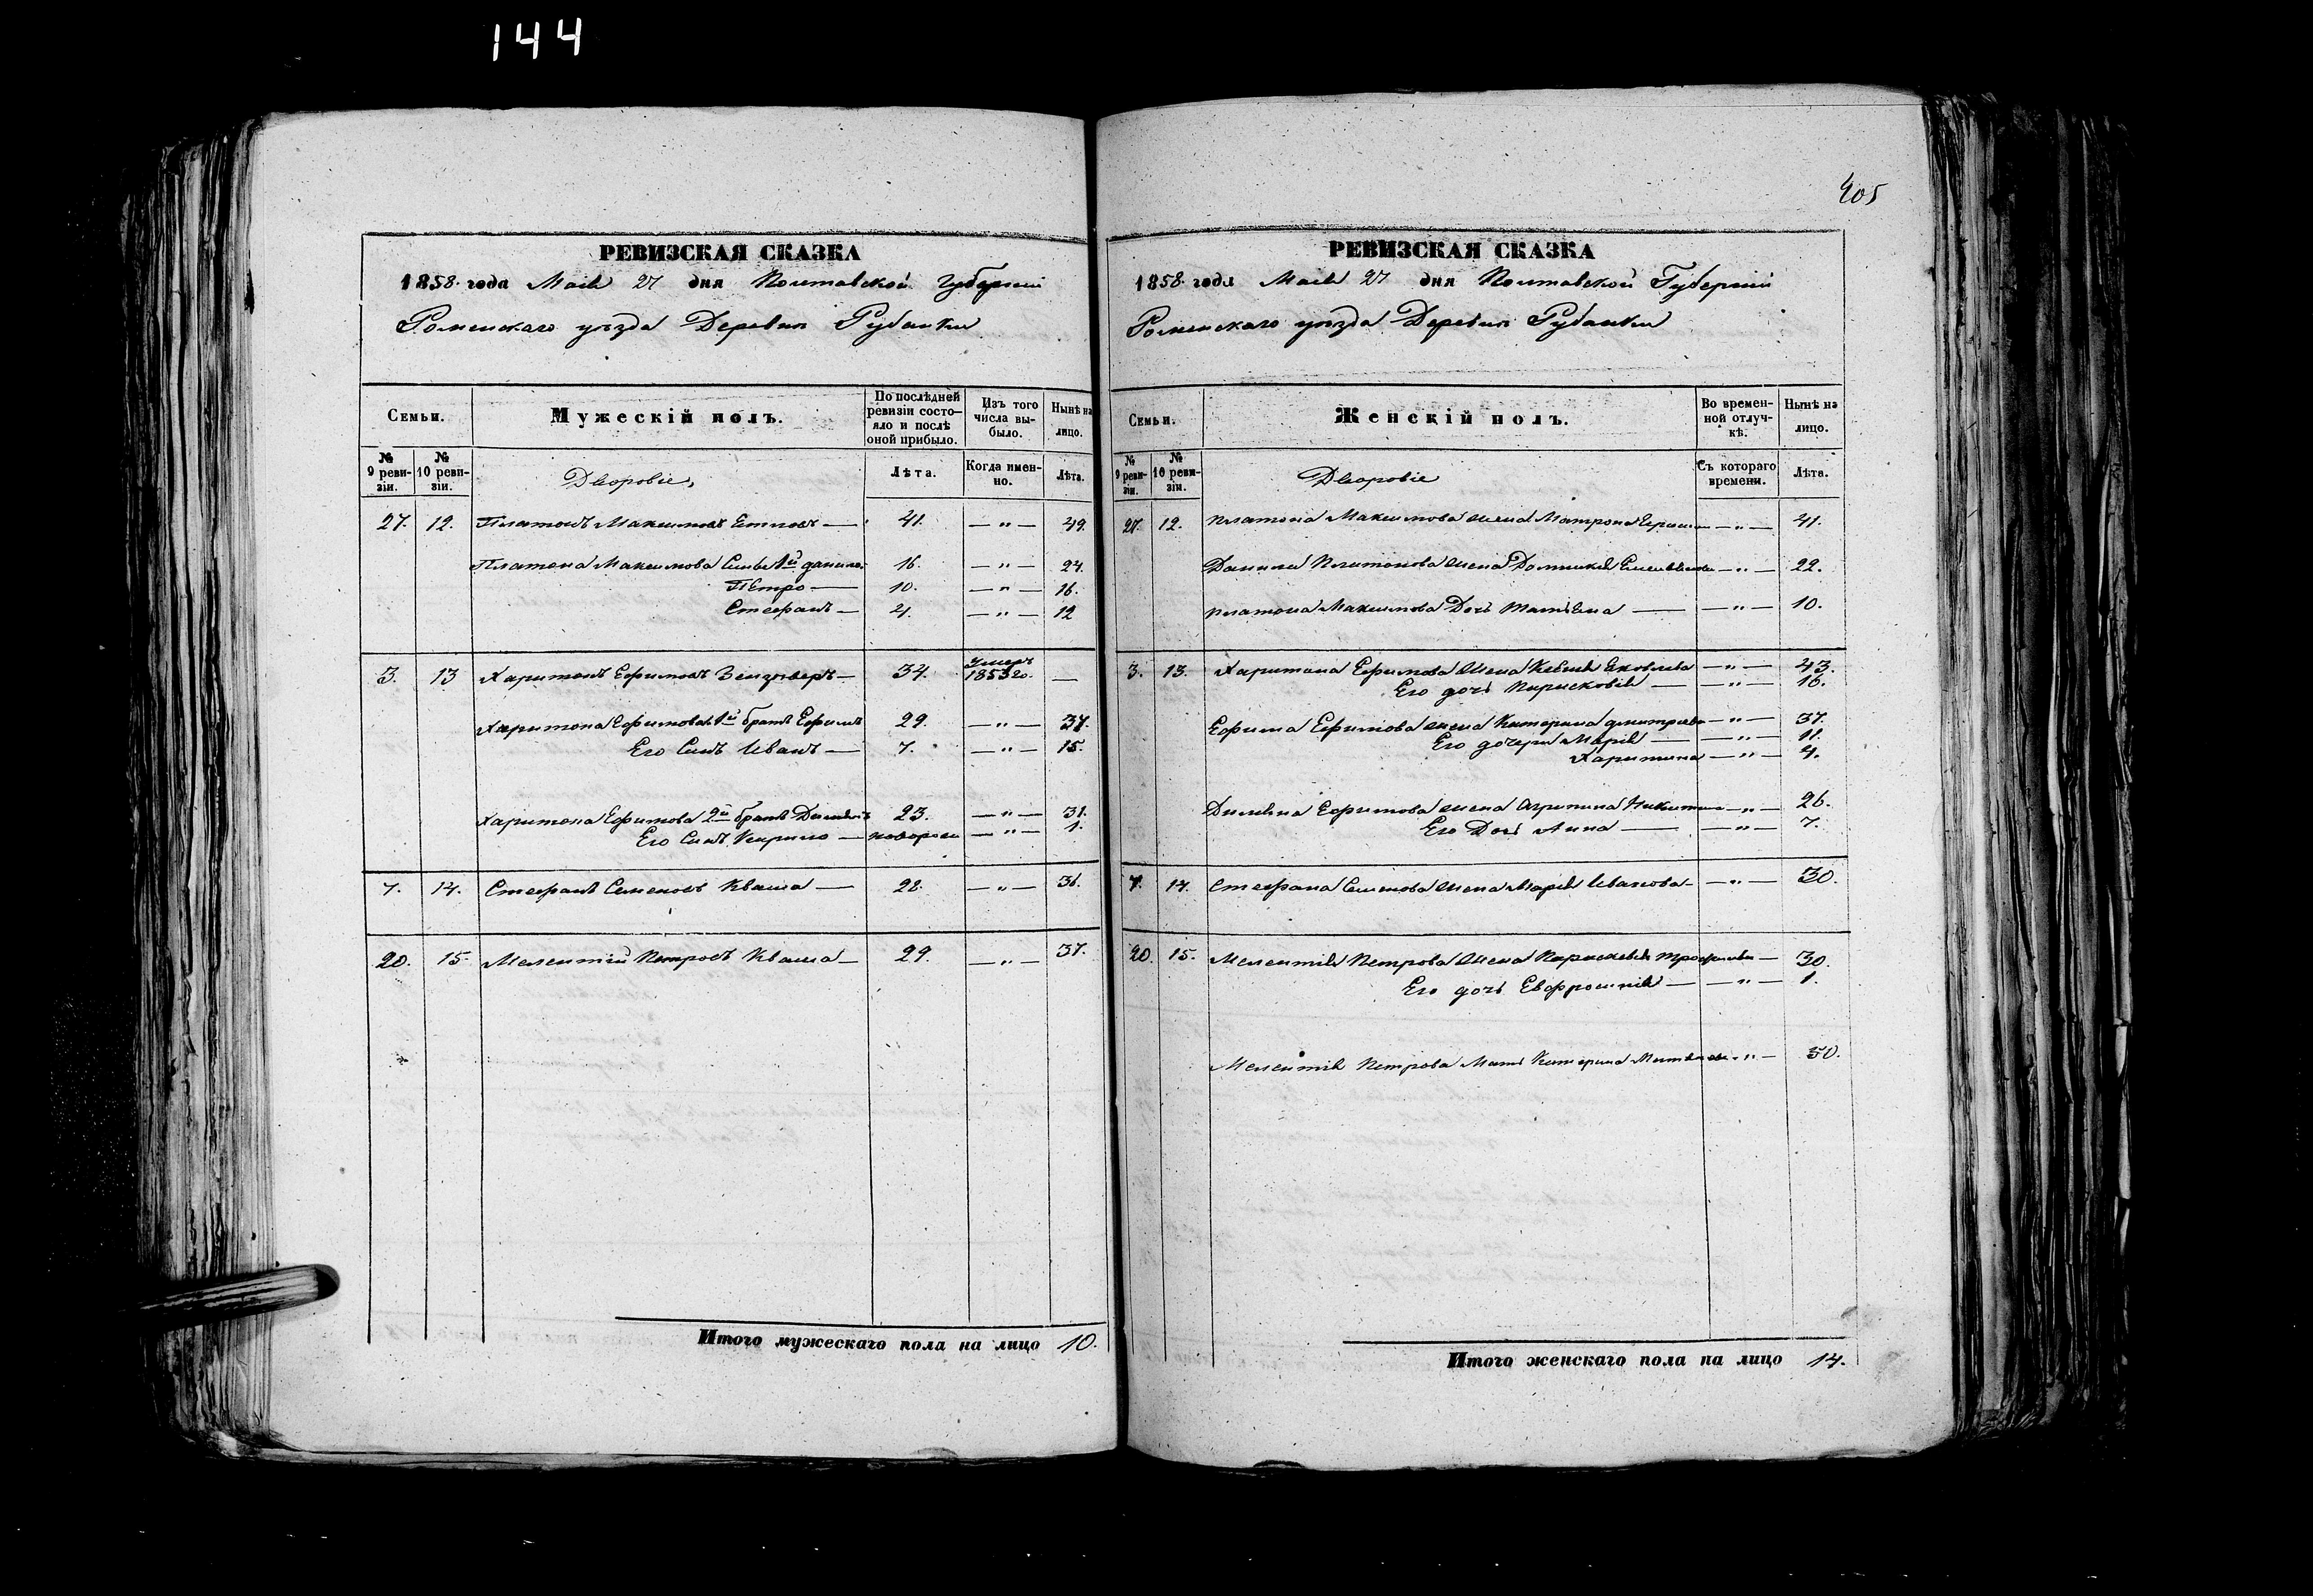 144
405
РЕВИЗСКАЯ СКАЗКА
1858. года Маія 27 дня Полтавской Губерніи
Роменскаго уѣзда Деревни Рубанки
Семьи.
Мужескій полъ.
По послѣдней ревизіи состояло и послѣ оной прибыло.
Изъ того числа выбыло.
Нынѣ на лицо.
№ 9 ревизіи.
№ 10 ревизіи.
Дворовіе,
Лѣта.
Когда именно.
Лѣта.
27. 12. Платонъ Максимовъ — 41. — „ — 49.
Платона Максимова Сыны 1й Данило 16. — „ — 24.
Петро — 10. — „ — 16.
Стефанъ — 4. — „ — 12
3. 13 Харитонъ Ефимовъ — 34. Умеръ 1853 го. —
Харитона Ефимова 1й братъ Ефимъ 29. — „ — 37.
Его Сынъ Иванъ — 7. — „ — 15.
Харитона Ефимова 2й братъ 23. — „ — 31.
Его Сынъ Кирило — новорож — „ — 1.
7. 14. Стефанъ Семеновъ Кваша — 28. — „ — 36.
20. 15. Мелентій Петровъ Кваша — 29. — „ — 37.
Итого мужескаго пола на лицо 10.
РЕВИЗСКАЯ СКАЗКА
1858. года Маія 27 дня Полтавской Губерніи
Роменскаго уѣзда Деревни Рубанки
Семьи.
Женскій полъ.
Во временной отлучкѣ.
Нынѣ на лицо.
№ 9 ревизіи.
№ 10 ревизіи.
Дворовіе
Съ котораго времени.
Лѣта.
27. 12. Платона Максимова жена Матрона — „ — 41.
Данила Платонова жена Домникія — „ — 22.
Платона Максимова Дочь Татьяна — — „ — 10.
3. 13. Харитона Ефимова жена Яковлева — „ — 43.
Его дочь Парасковія — — „ — 16.
Ефима Ефимова жена Катерина Дмитріева — „ — 37.
Его дочери Марія — — „ — 11.
Харитина — „ — 4.
Ефимова жена Агрипина Никитина — „ — 26.
Его Дочь Анна — — „ — 7.
7. 14. Стефана Семенова жена Марія Иванова — — „ — 30.
20. 15. Мелентія Петрова жена Параскевія Трофимова — 30.
Его дочь Евфросинія — — „ — 1.
Мелентія Петрова Мать Катерина — „ — 50.
Итого женскаго пола на лицо 14.